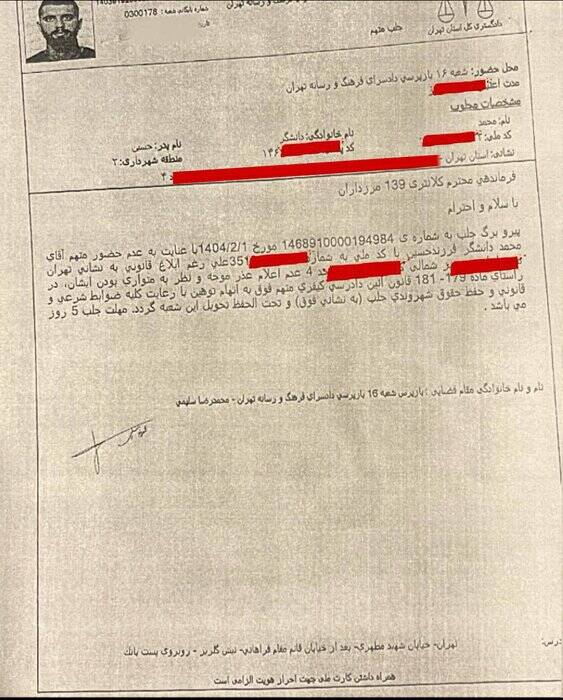 شماره بایگانی شعبه: 0300178
دادگستری کل استان تهران
جلب متهم
محل حضور: شعبه ۱۶ بازپرسی دادسرای فرهنگ و رسانه تهران
مدت
مشخصات مجلوب
نام: محمد
نام خانوادگی: دانشگر
نام پدر: حسین
کد ملی:
کد
منطقه شهرداری: ۲
نشانی: استان تهران -
فرماندهی محترم کلانتری 139 مرزداران
با سلام و احترام
پیرو برگ جلب به شماره ی 1468910000194984 مورخ 1404/2/1 با عنایت به عدم حضور متهم آقای
محمد دانشگر فرزند حسین با کد ملی به شماره 351 علی رغم ابلاغ قانونی به نشانی تهران
شمالی 4 عدم اعلام عذر موجه و نظر به متواری بودن ایشان، در
راستای ماده 179- 181 قانون آئین دادرسی کیفری متهم فوق به اتهام توهین با رعایت کلیه ضوابط شرعی و
قانونی و حفظ حقوق شهروندی جلب (به نشانی فوق) و تحت الحفظ تحویل این شعبه گردد. مهلت جلب 5 روز
می باشد .
نام و نام خانوادگی مقام قضایی : بازپرس شعبه 16 بازپرسی دادسرای فرهنگ و رسانه تهران - محمدرضا سلیمی
تهران- خیابان شهید مطهری- بعد از خیابان قائم مقام فراهانی- نبش گلریز - روبروی پست بانک
همراه داشتن کارت ملی جهت احراز هویت الزامی است